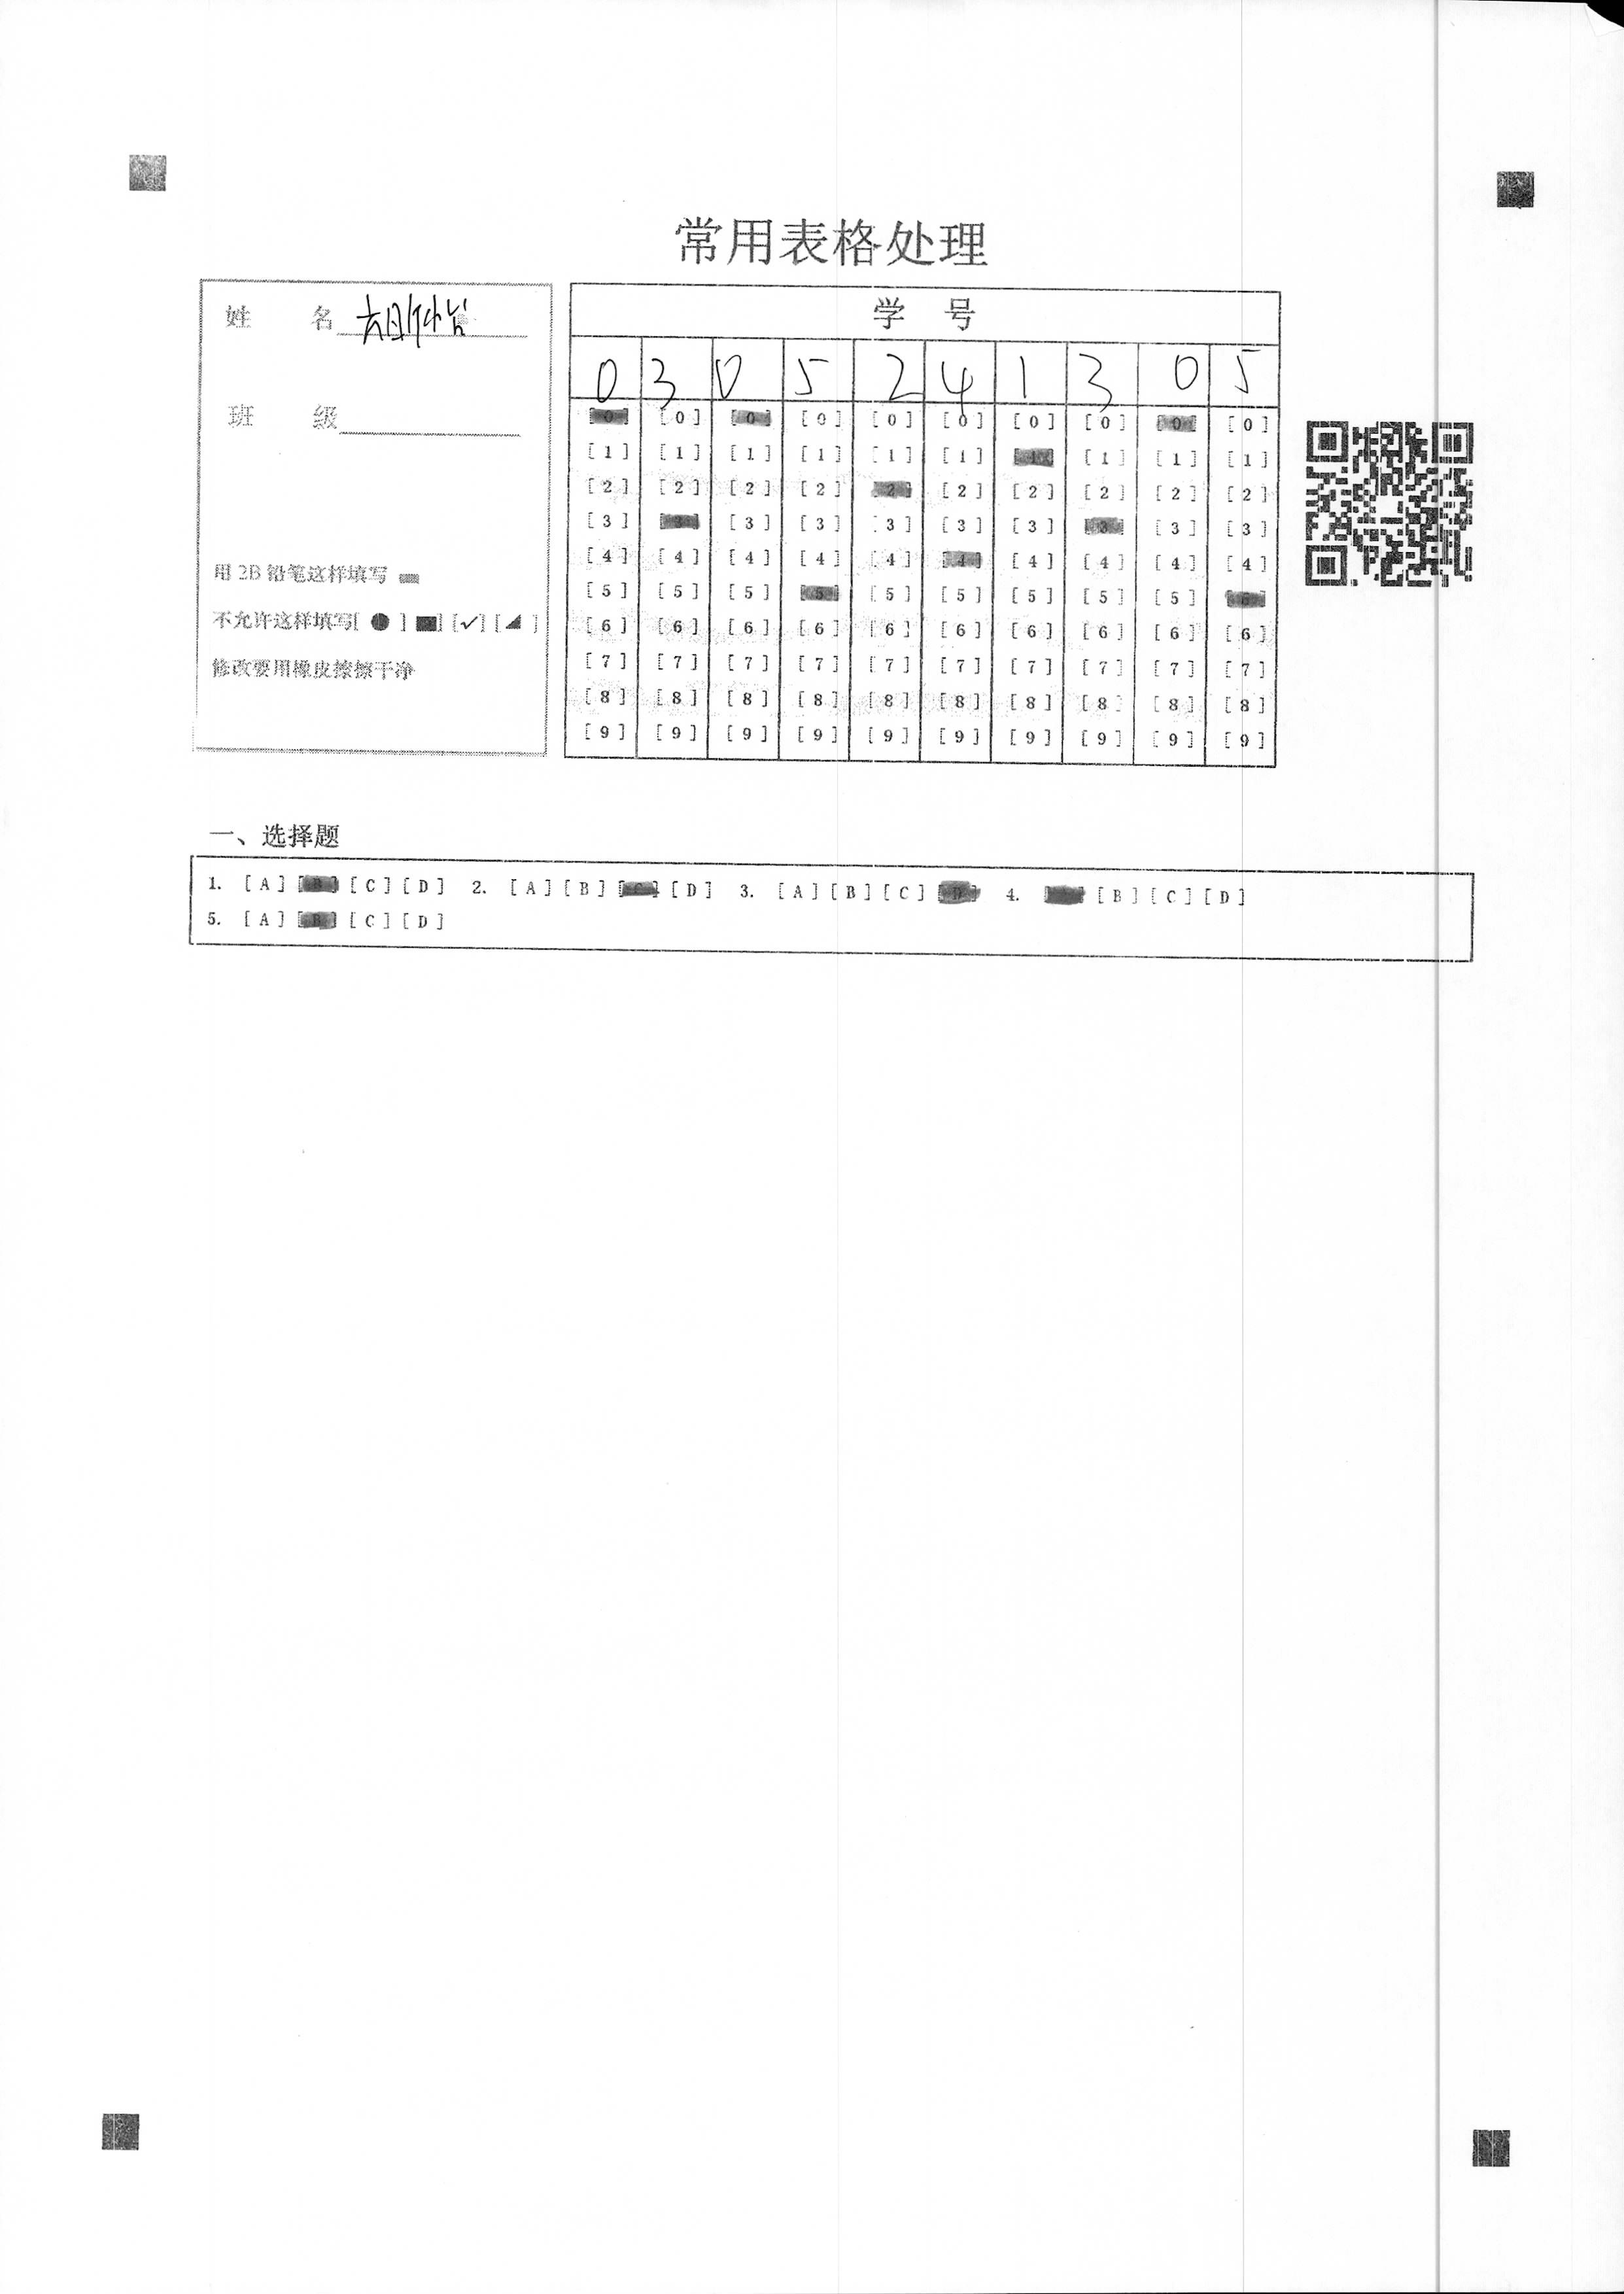 常用表格处理
姓 名
班 级
用 2B 铅笔这样填写
不允许这样填写[ ● ] ■] [✓] [◢ ]
修改要用橡皮擦擦干净
学 号
0 3 0 5 2 4 1 3 0 5
[0] [0] [0] [0] [0] [0] [0] [0] [0] [0]
[1] [1] [1] [1] [1] [1] [1] [1] [1] [1]
[2] [2] [2] [2] [2] [2] [2] [2] [2] [2]
[3] [3] [3] [3] [3] [3] [3] [3] [3] [3]
[4] [4] [4] [4] [4] [4] [4] [4] [4] [4]
[5] [5] [5] [5] [5] [5] [5] [5] [5] [5]
[6] [6] [6] [6] [6] [6] [6] [6] [6] [6]
[7] [7] [7] [7] [7] [7] [7] [7] [7] [7]
[8] [8] [8] [8] [8] [8] [8] [8] [8] [8]
[9] [9] [9] [9] [9] [9] [9] [9] [9] [9]
一、选择题
1. [A] [B] [C] [D] 2. [A] [B] [C] [D] 3. [A] [B] [C] [D] 4. [A] [B] [C] [D]
5. [A] [B] [C] [D]